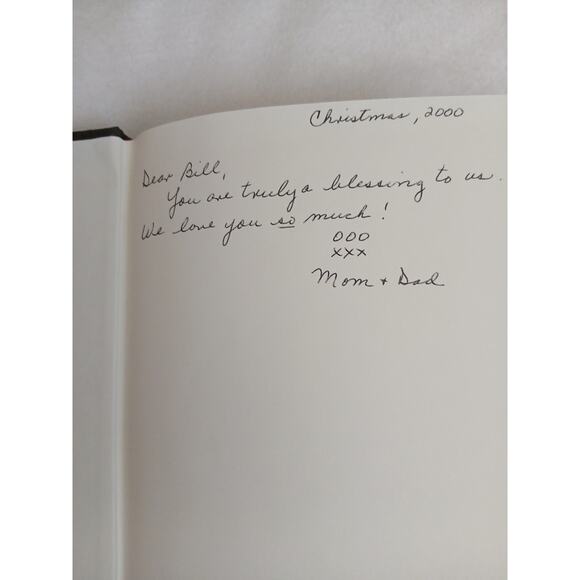 Christmas, 2000
Dear Bill,
You are truly a blessing to us.
We love you so much!
OOO
XXX
Mom + Dad